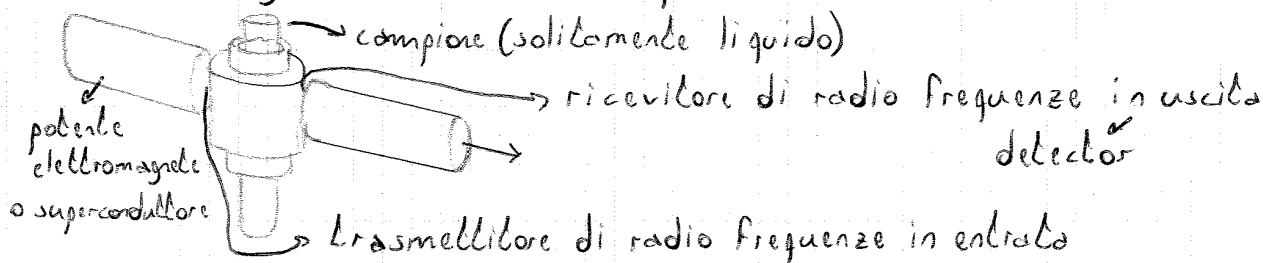 campione (solitamente liquido)
ricevitore di radio frequenze in uscita
detector
potente
elettromagnete
o superconduttore
trasmettitore di radio frequenze in entrata